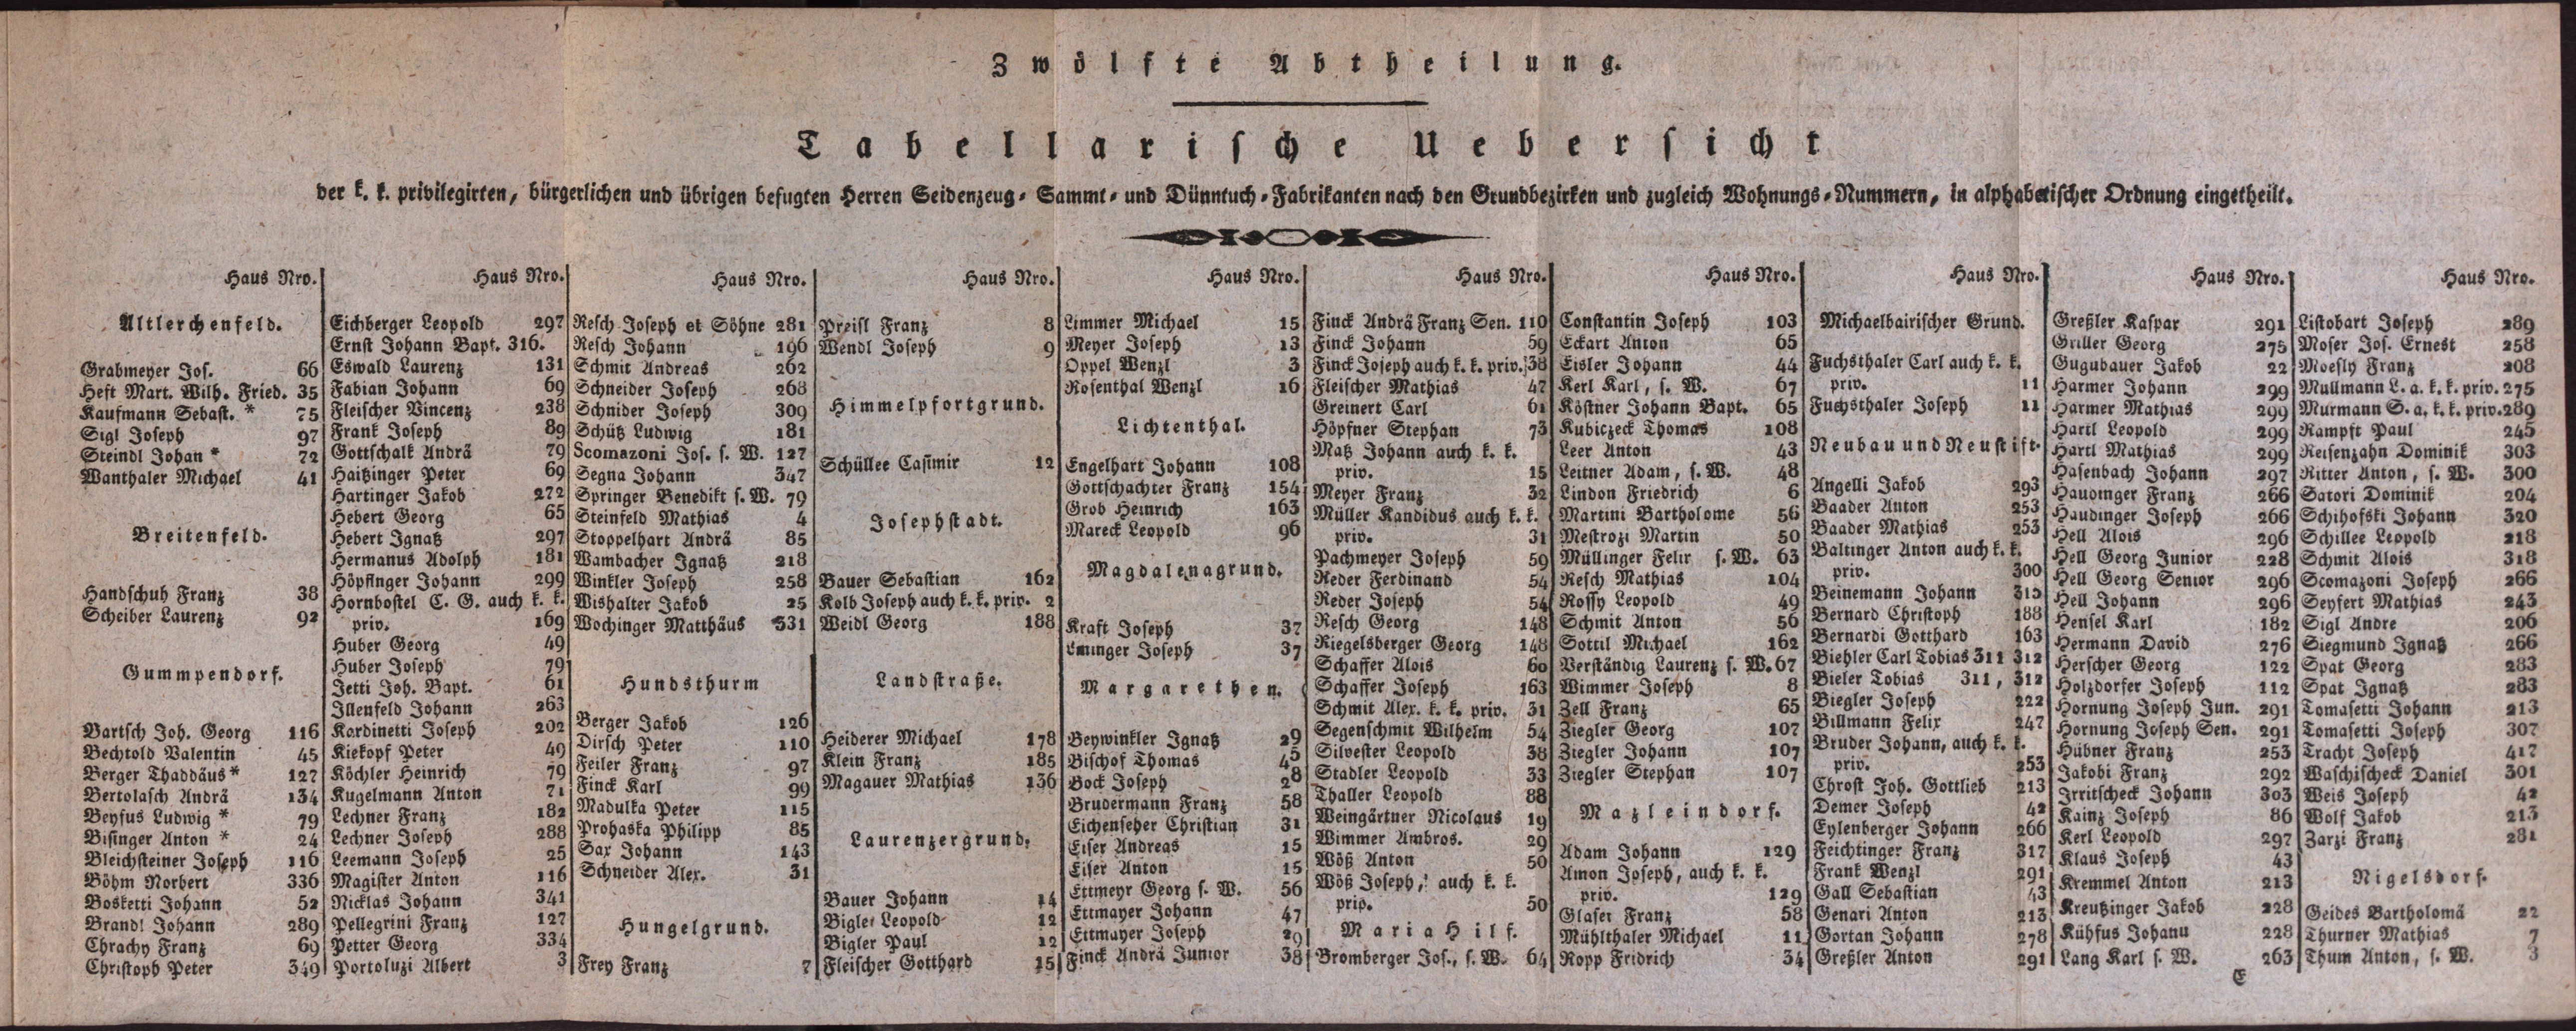 Zwölfte Abtheilung.
Tabellarische Uebersicht
der k. k. privilegirten, bürgerlichen und übrigen befugten Herren Seidenzeug- Sammt- und Dünntuch-Fabrikanten nach den Grundbezirken und zugleich Wohnungs-Nummern, in alphabetischer Ordnung eingetheilt.
Haus Nro.
Altlerchenfeld.
Grabmeyer Jos. 66
Heft Mart. Wilh. Fried. 35
Kaufmann Sebast. * 75
Sigl Joseph 97
Steindl Johan * 72
Wanthaler Michael 41
Breitenfeld.
Handschuh Franz 38
Scheiber Laurenz 92
Gummpendorf.
Bartsch Joh. Georg 116
Bechtold Valentin 45
Berger Thaddäus * 127
Bertolasch Andrä 134
Beyfus Ludwig * 79
Bisinger Anton * 24
Bleichsteiner Joseph 116
Böhm Norbert 336
Bosketti Johann 52
Brandl Johann 289
Chrachy Franz 69
Christoph Peter 349
Haus Nro.
Eichberger Leopold 297
Ernst Johann Bapt. 316.
Eswald Laurenz 131
Fabian Johann 69
Fleischer Vincenz 238
Frank Joseph 89
Gottschalk Andrä 79
Haitzinger Peter 69
Hartinger Jakob 272
Hebert Georg 65
Hebert Ignatz 297
Hermanus Adolph 181
Höpfinger Johann 299
Hornbostel C. G. auch k. k.
priv. 169
Huber Georg 49
Huber Joseph 79
Jetti Joh. Bapt. 61
Illenfeld Johann 263
Kardinetti Joseph 202
Kiekopf Peter 49
Köchler Heinrich 79
Kugelmann Anton 71
Lechner Franz 182
Lechner Joseph 288
Leemann Joseph 25
Magister Anton 116
Nicklas Johann 341
Pellegrini Franz 127
Petter Georg 334
Portoluzi Albert 3
Haus Nro.
Resch Joseph et Söhne 281
Resch Johann 196
Schmit Andreas 262
Schneider Joseph 268
Schnider Joseph 309
Schütz Ludwig 181
Scomazoni Jos. s. W. 127
Segna Johann 347
Springer Benedikt s. W. 79
Steinfeld Mathias 4
Stoppelhart Andrä 85
Wambacher Ignatz 218
Winkler Joseph 258
Wishalter Jakob 25
Wochinger Matthäus 331
Hundsthurm
Berger Jakob 126
Dirsch Peter 110
Feiler Franz 97
Finck Karl 99
Madulka Peter 115
Prohaska Philipp 85
Sax Johann 143
Schneider Alex. 31
Hungelgrund.
Frey Franz 7
Haus Nro.
Preisl Franz 8
Wendl Joseph 9
Himmelpfortgrund.
Schüllee Casimir 12
Josephstadt.
Bauer Sebastian 162
Kolb Joseph auch k. k. priv. 2
Weidl Georg 188
Landstraße.
Heiderer Michael 178
Klein Franz 185
Magauer Mathias 136
Laurenzergrund.
Bauer Johann 14
Bigler Leopold 12
Bigler Paul 12
Fleischer Gotthard 15
Haus Nro.
Limmer Michael 15
Meyer Joseph 13
Oppel Wenzl 3
Rosenthal Wenzl 16
Lichtenthal.
Engelhart Johann 108
Gottschachter Franz 154
Grob Heinrich 163
Mareck Leopold 96
Magdalenagrund.
Kraft Joseph 37
Joseph 37
Margarethen.
Beywinkler Ignatz 29
Bischof Thomas 45
Bock Joseph 28
Brudermann Franz 58
Eichenseher Christian 31
Eiser Andreas 15
Eiser Anton 15
Ettmeyr Georg s. W. 56
Ettmayer Johann 47
Ettmayer Joseph 29
Finck Andrä Junior 38
Haus Nro.
Finck Andrä Franz Sen. 110
Finck Johann 59
Finck Joseph auch k. k. priv. 38
Fleischer Mathias 47
Greinert Carl 61
Höpfner Stephan 73
Matz Johann auch k. k.
priv. 15
Meyer Franz 32
Müller Kandidus auch k. k.
priv. 31
Pachmeyer Joseph 59
Reder Ferdinand 54
Reder Joseph 54
Resch Georg 148
Riegelsberger Georg 148
Schaffer Alois 60
Schaffer Joseph 163
Schmit Alex. k. k. priv. 31
Segenschmit Wilhelm 54
Silvester Leopold 38
Stadler Leopold 33
Thaller Leopold 88
Weingärtner Nicolaus 19
Wimmer Ambros. 29
Wöß Anton 50
Wöß Joseph, auch k. k.
priv. 50
Maria Hilf.
Bromberger Jos., s. W. 64
Haus Nro.
Constantin Joseph 103
Eckart Anton 65
Eisler Johann 44
Kerl Karl, s. W. 67
Köstner Johann Bapt. 65
Kubiczeck Thomas 108
Leer Anton 43
Leitner Adam, s. W. 48
Lindon Friedrich 6
Martini Bartholome 56
Mestrozi Martin 50
Müllinger Felix s. W. 63
Resch Mathias 104
Rossy Leopold 49
Schmit Anton 56
Sottil Michael 162
Verständig Laurenz s. W. 67
Wimmer Joseph 8
Zell Franz 65
Ziegler Georg 107
Ziegler Johann 107
Ziegler Stephan 107
Mazleindorf.
Adam Johann 129
Amon Joseph, auch k. k.
priv. 129
Glaser Franz 58
Mühlthaler Michael 11
Ropp Fridrich 34
Haus Nro.
Michaelbairischer Grund.
Fuchsthaler Carl auch k. k.
priv. 11
Fuchsthaler Joseph 11
Neubau und Neustift.
Angelli Jakob 293
Baader Anton 253
Baader Mathias 253
Baltinger Anton auch k. k.
priv. 300
Beinemann Johann 315
Bernard Christoph 188
Bernardi Gotthard 163
Biehler Carl Tobias 311 312
Bieler Tobias 311, 312
Biegler Joseph 222
Billmann Felix 247
Bruder Johann, auch k. k.
priv. 253
Chrost Joh. Gottlieb 213
Demer Joseph 42
Eylenberger Johann 266
Feichtinger Franz 317
Frank Wenzl 291
Gall Sebastian 43
Genari Anton 213
Gortan Johann 278
Greßler Anton 291
Haus Nro.
Greßler Kaspar 291
Griller Georg 275
Gugubauer Jakob 22
Harmer Johann 299
Harmer Mathias 299
Hartl Leopold 299
Hartl Mathias 299
Hasenbach Johann 297
Haudinger Franz 266
Haudinger Joseph 266
Hell Alois 296
Hell Georg Junior 228
Hell Georg Senior 296
Hell Johann 296
Hensel Karl 182
Hermann David 276
Herscher Georg 122
Holzdorfer Joseph 112
Hornung Joseph Jun. 291
Hornung Joseph Sen. 291
Hübner Franz 253
Jakobi Franz 292
Irritscheck Johann 303
Kainz Joseph 86
Kerl Leopold 297
Klaus Joseph 43
Kremmel Anton 213
Kreutzinger Jakob 228
Kühfus Johann 228
Lang Karl s. W. 263
E
Haus Nro.
Listobart Joseph 289
Moser Jos. Ernest 258
Moesly Franz 208
Mullmann L. a. k. k. priv. 275
Murmann S. a. k. k. priv. 289
Rampft Paul 245
Reisenzahn Dominik 303
Ritter Anton, s. W. 300
Satori Dominik 204
Schihofski Johann 320
Schillee Leopold 218
Schmit Alois 318
Scomazoni Joseph 266
Seyfert Mathias 243
Sigl Andre 206
Siegmund Ignatz 266
Spat Georg 283
Spat Ignatz 283
Tomasetti Johann 213
Tomasetti Joseph 307
Tracht Joseph 417
Waschischeck Daniel 301
Weis Joseph 42
Wolf Jakob 213
Zarzi Franz 281
Nigelsdorf.
Geides Bartholomä 22
Thurner Mathias 7
Thum Anton, s. W. 3